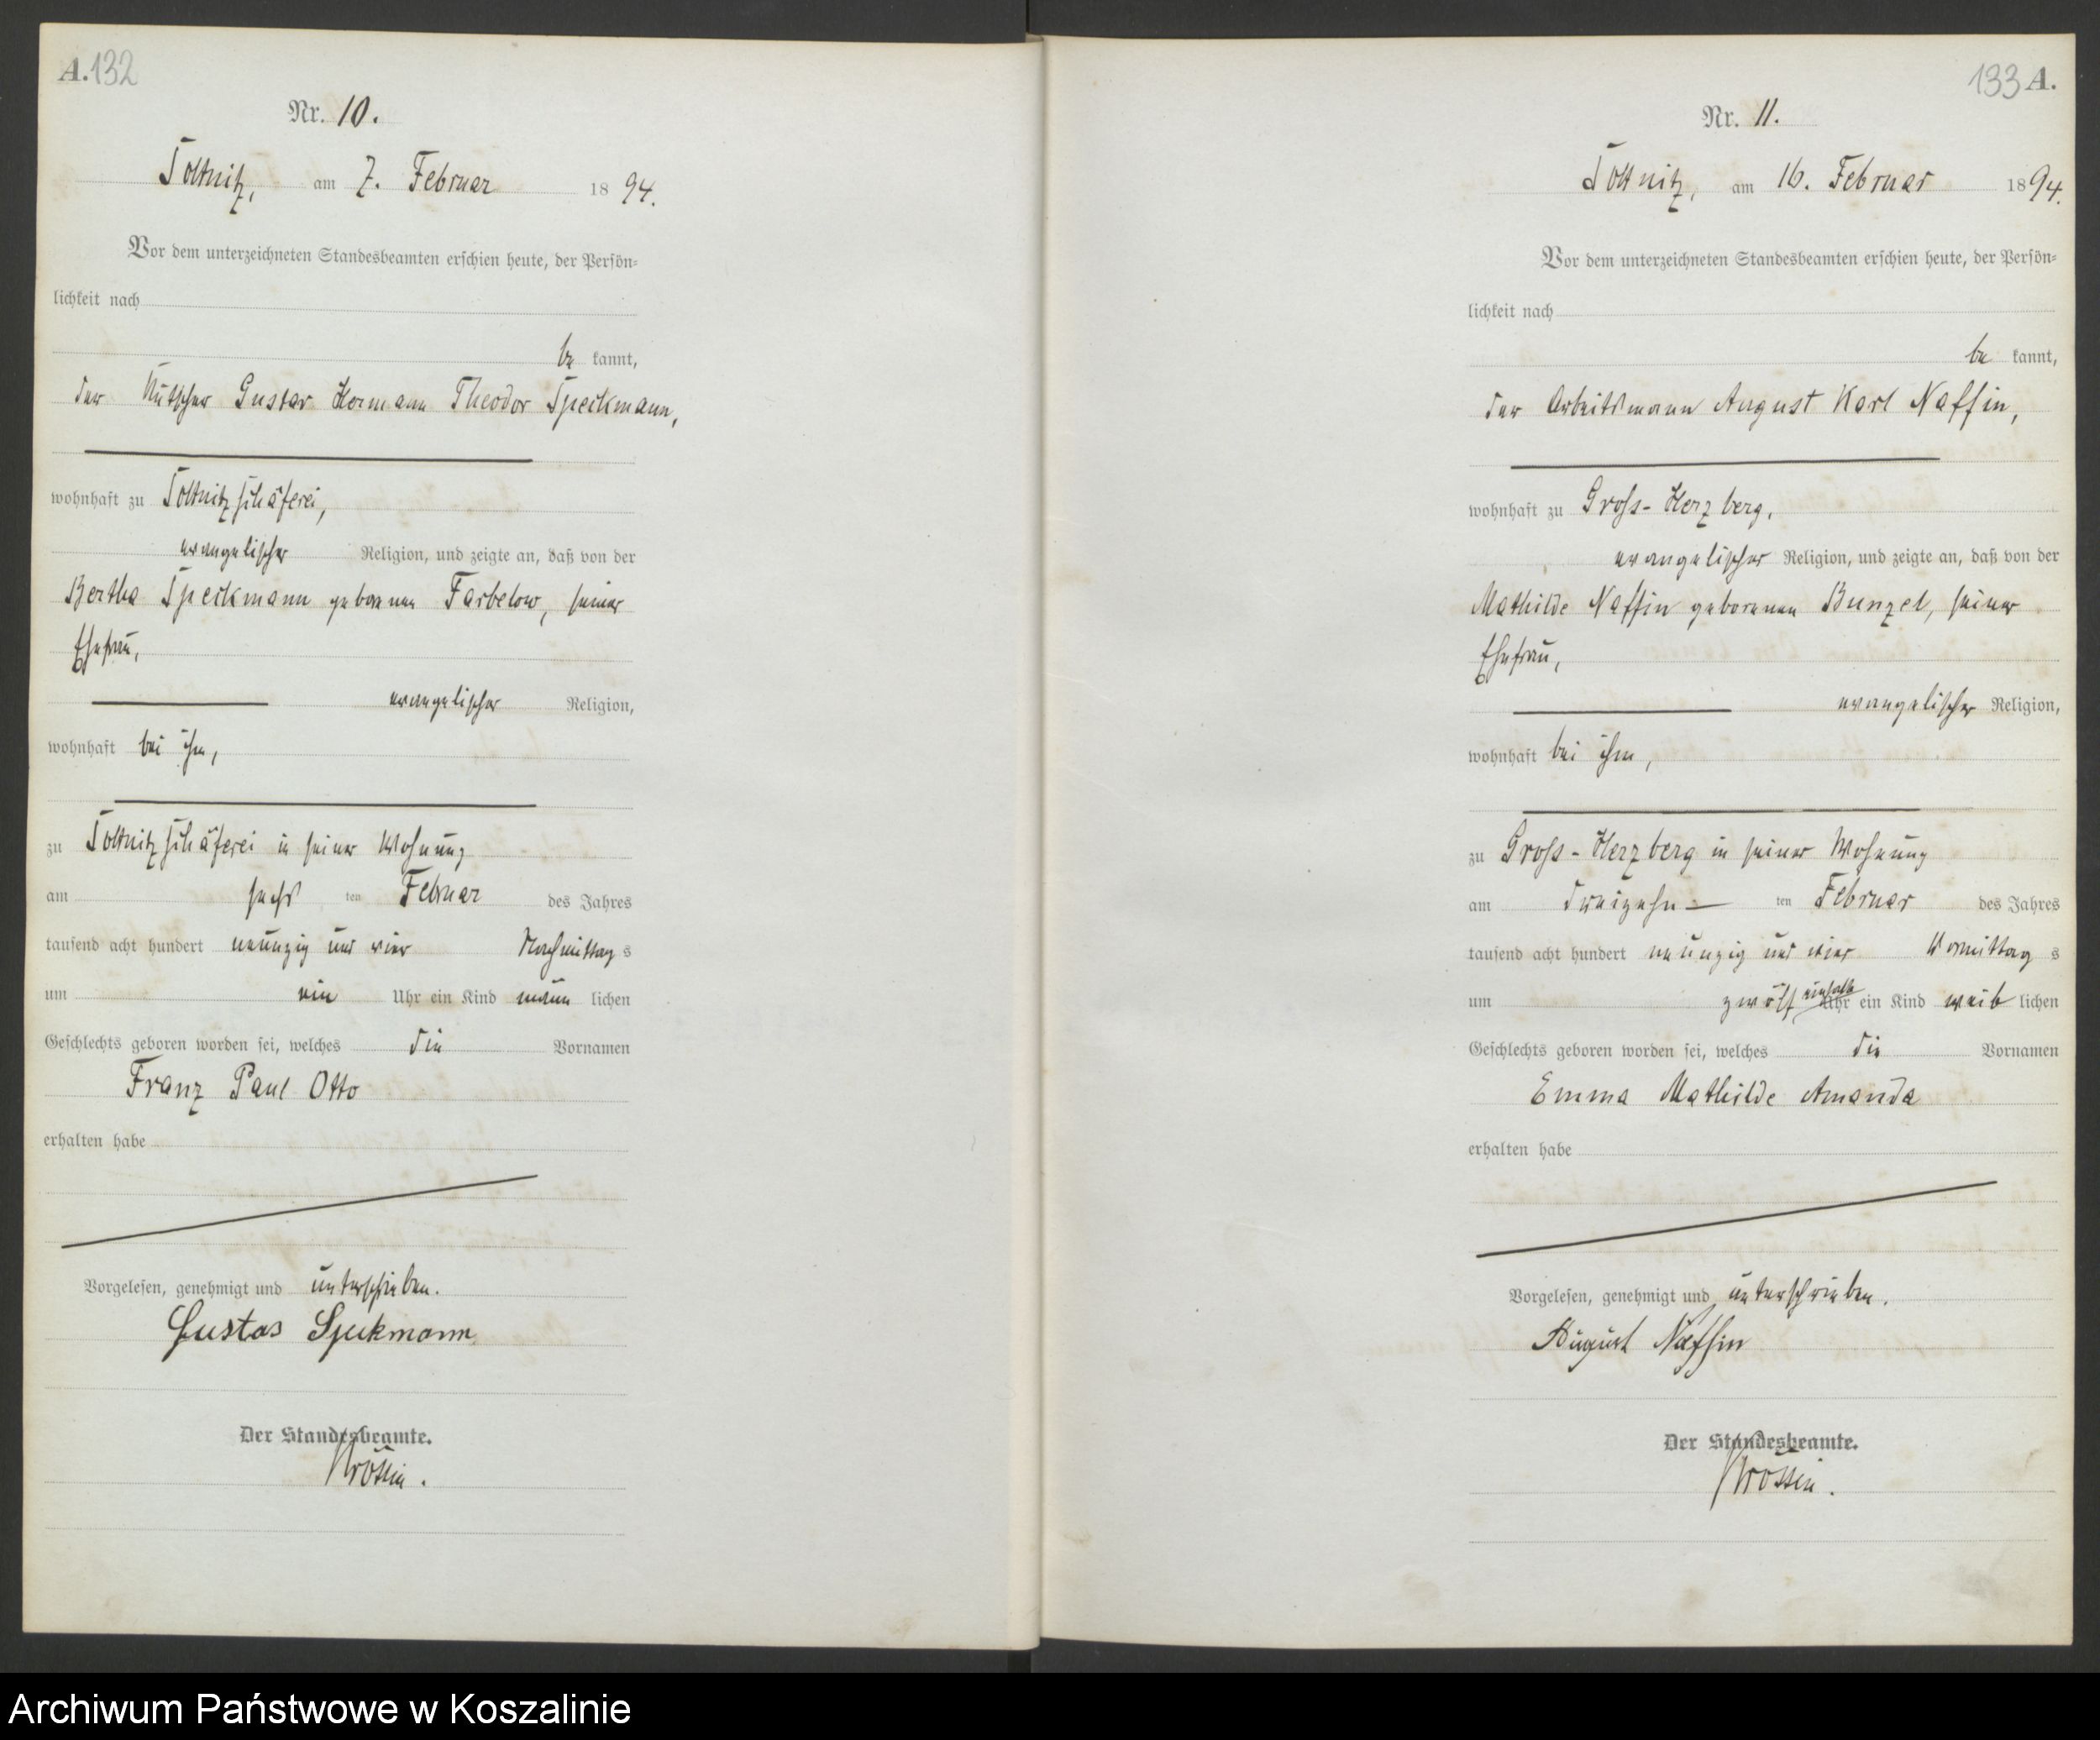 A. 132
Nr. 10.
Soltnitz, am 7. Februar 1894.
Vor dem unterzeichneten Standesbeamten erschien heute, der Persön-
lichkeit nach
be kannt,
der Kutscher Gustav Hermann Theodor Speckmann,
wohnhaft zu Soltnitz schäferei,
evangelischer Religion, und zeigte an, daß von der
Bertha Speckmann geborenen Farbelow, seiner
Ehefrau,
evangelischer Religion,
wohnhaft bei ihm,
zu Soltnitz schäferei in seiner Wohnung
am sechs ten Februar des Jahres
tausend acht hundert neunzig und vier Nachmittag s
um ein Uhr ein Kind männ lichen
Geschlechts geboren worden sei, welches die Vornamen
Franz Paul Otto
erhalten habe
Vorgelesen, genehmigt und unterschrieben.
Gustav Speckmann
Der Standesbeamte.
133 A.
Nr. 11.
Soltnitz, am 16. Februar 1894.
Vor dem unterzeichneten Standesbeamten erschien heute, der Persön-
lichkeit nach
be kannt,
der Arbeitsmann August Karl Naffin,
wohnhaft zu Gross-Herzberg,
evangelischer Religion, und zeigte an, daß von der
Mathilde Naffin geborenen Bunzel, seiner
Ehefrau,
evangelischer Religion,
wohnhaft bei ihm,
zu Gross-Herzberg in seiner Wohnung
am dreizehn ten Februar des Jahres
tausend acht hundert neunzig und vier Vormittag s
um zwölf einhalb Uhr ein Kind weib lichen
Geschlechts geboren worden sei, welches die Vornamen
Emma Mathilde Amanda
erhalten habe
Vorgelesen, genehmigt und unterschrieben.
August Naffin
Der Standesbeamte.
Archiwum Państwowe w Koszalinie